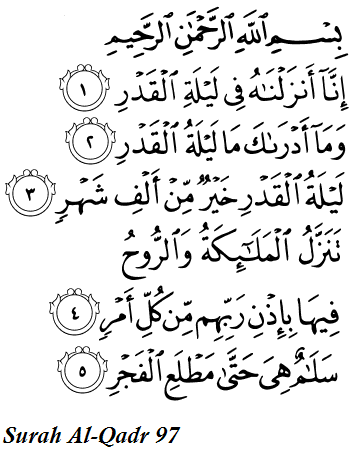 بِسْمِ اللَّهِ الرَّحْمَٰنِ الرَّحِيمِ
إِنَّآ أَنزَلْنَٰهُ فِى لَيْلَةِ الْقَدْرِ ١
وَمَآ أَدْرَىٰكَ مَا لَيْلَةُ الْقَدْرِ ٢
لَيْلَةُ الْقَدْرِ خَيْرٌ مِّنْ أَلْفِ شَهْرٍ ٣
تَنَزَّلُ الْمَلَٰٓئِكَةُ وَالرُّوحُ
فِيهَا بِإِذْنِ رَبِّهِم مِّن كُلِّ أَمْرٍ ٤
سَلَٰمٌ هِىَ حَتَّىٰ مَطْلَعِ الْفَجْرِ ٥
Surah Al-Qadr 97